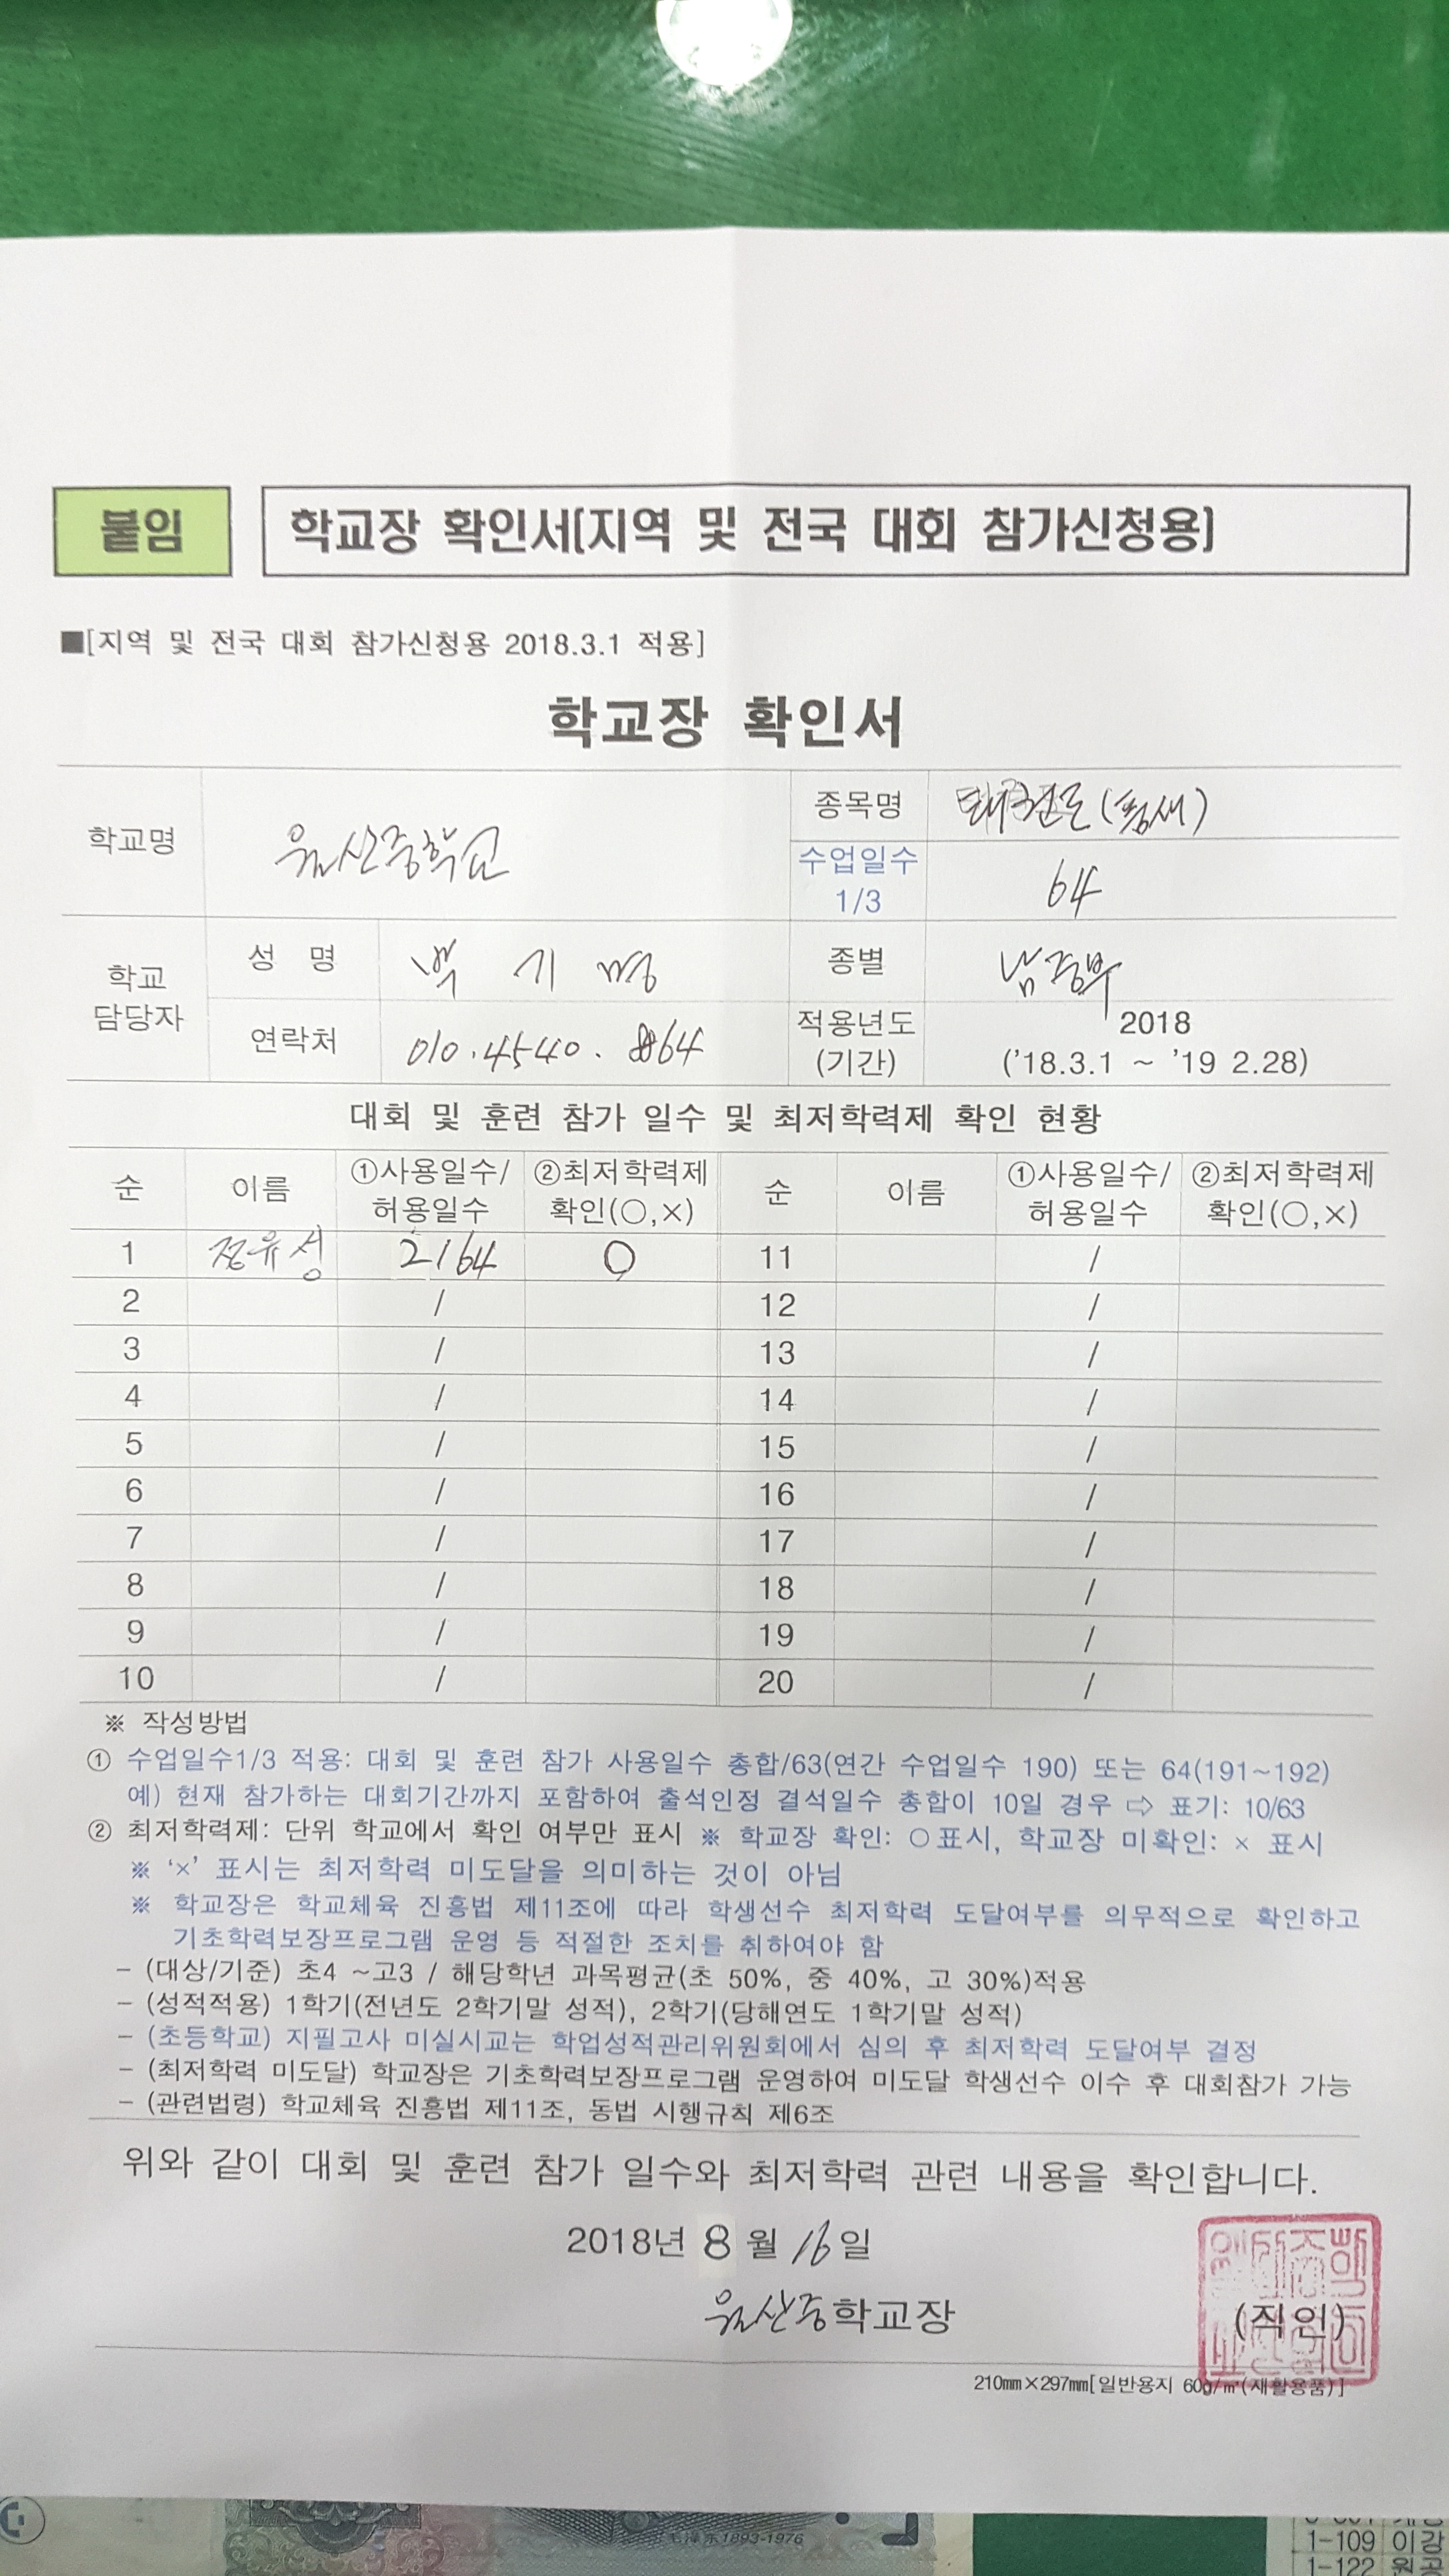 붙임
학교장 확인서[지역 및 전국 대회 참가신청용]
■[지역 및 전국 대회 참가신청용 2018.3.1 적용]
학교장 확인서
학교명 중학교 종목명 태권도(품새)
수업일수 1/3 64
학교 담당자 성 명 박 기 종별 남중부
연락처 010.4540. 적용년도 (기간) 2018 ('18.3.1 ~ '19 2.28)
대회 및 훈련 참가 일수 및 최저학력제 확인 현황
순 이름 ①사용일수/허용일수 ②최저학력제 확인(○,×) 순 이름 ①사용일수/허용일수 ②최저학력제 확인(○,×)
1 정유성 2/64 O 11 /
2 / 12 /
3 / 13 /
4 / 14 /
5 / 15 /
6 / 16 /
7 / 17 /
8 / 18 /
9 / 19 /
10 / 20 /
※ 작성방법
① 수업일수1/3 적용: 대회 및 훈련 참가 사용일수 총합/63(연간 수업일수 190) 또는 64(191~192)
예) 현재 참가하는 대회기간까지 포함하여 출석인정 결석일수 총합이 10일 경우 ⇨ 표기: 10/63
② 최저학력제: 단위 학교에서 확인 여부만 표시 ※ 학교장 확인: ○표시, 학교장 미확인: × 표시
※ '×' 표시는 최저학력 미도달을 의미하는 것이 아님
※ 학교장은 학교체육 진흥법 제11조에 따라 학생선수 최저학력 도달여부를 의무적으로 확인하고
기초학력보장프로그램 운영 등 적절한 조치를 취하여야 함
- (대상/기준) 초4 ~고3 / 해당학년 과목평균(초 50%, 중 40%, 고 30%)적용
- (성적적용) 1학기(전년도 2학기말 성적), 2학기(당해연도 1학기말 성적)
- (초등학교) 지필고사 미실시교는 학업성적관리위원회에서 심의 후 최저학력 도달여부 결정
- (최저학력 미도달) 학교장은 기초학력보장프로그램 운영하여 미도달 학생선수 이수 후 대회참가 가능
- (관련법령) 학교체육 진흥법 제11조, 동법 시행규칙 제6조
위와 같이 대회 및 훈련 참가 일수와 최저학력 관련 내용을 확인합니다.
2018년 8 월 16 일
학교장 (직인)
210㎜×297㎜[일반용지 60g/㎡(재활용품)]
毛泽东1893-1976
1-109 이강
1-122 원